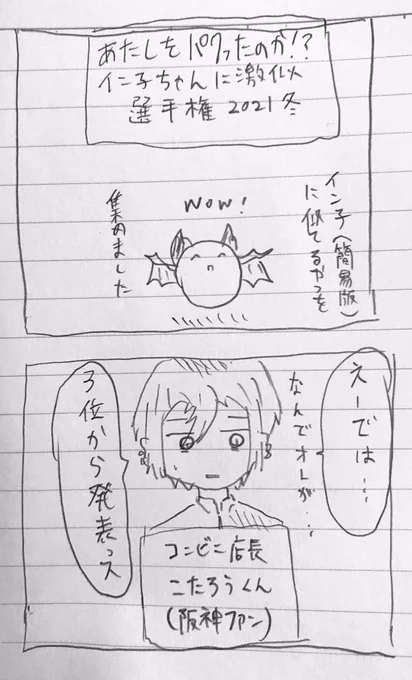 あたしをパクったのか!?
イン子ちゃんに激似
選手権 2021 冬
イン子(簡易版)
に似てるやつを
WOW!
集めました
えーでは…
なんでオレが…
3位から発表っス
コンビニ店長
こたろうくん
(阪神ファン)